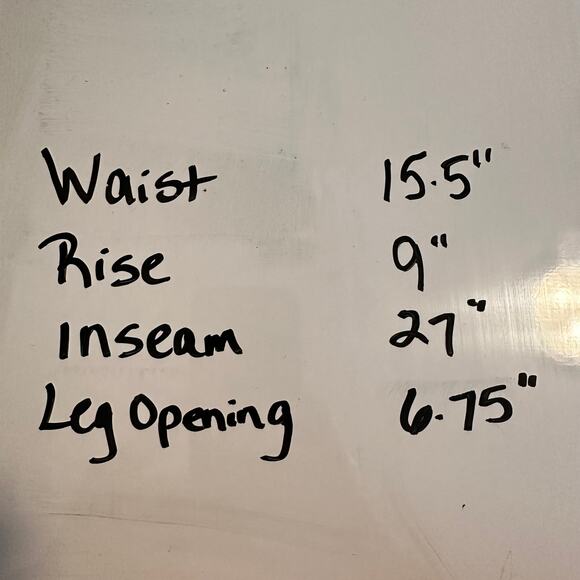 Waist 15.5"
Rise 9"
Inseam 27"
Leg Opening 6.75"